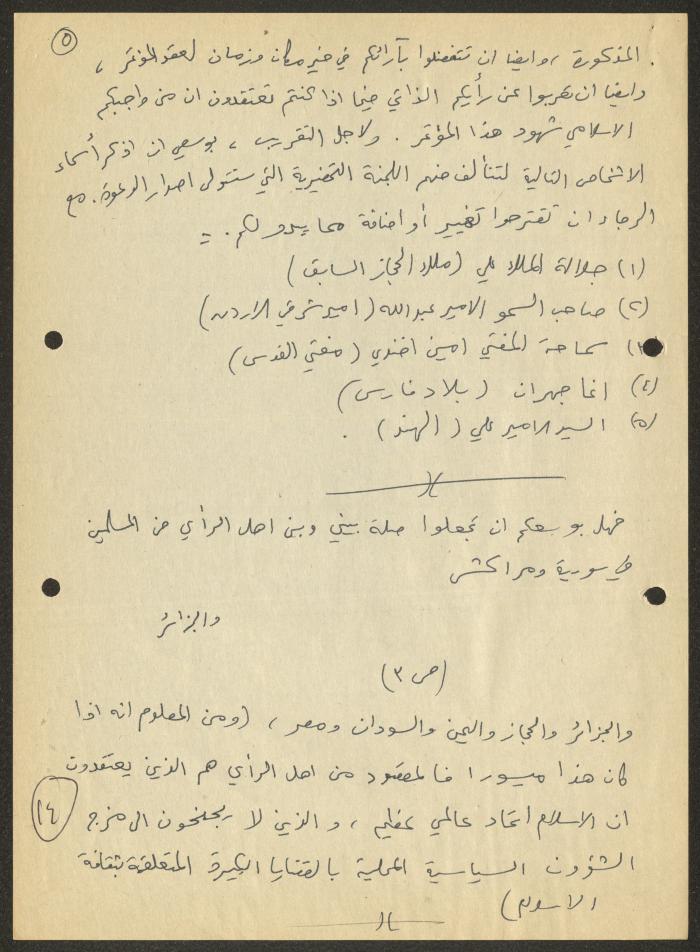 ٥
المذكورة ، وايضا ان تتفضلوا بآرائكم في خير مكان وزمان لعقد المؤتمر ،
وايضا ان تعربوا عن رأيكم الذاتي فيما اذا كنتم تعتقدون ان من واجبكم
الاسلامي شهود هذا المؤتمر . ولاجل التقريب ، بوسعي ان اذكر أسماء
الاشخاص التالية لتتألف منهم اللجنة التحضيرية التي ستتولى اصدار الدعوة . مع
الرجاء ان تقترحوا تغيير أو اضافة مما يبدو لكم . =
(١) جلالة الملك علي (ملك الحجاز السابق)
(٢) صاحب السمو الامير عبدالله (امير شرقي الاردن)
(٣) سماحة المفتي امين افندي (مفتي القدس)
(٤) اغا جهران (بلاد فارس)
(٥) السيد الامير علي (الهند) .
فهل بوسعكم ان تجعلوا صلة بيني وبين اهل الرأي من المسلمين
في سورية ومراكش
والجزائر
(ص ٣)
والجزائر والحجاز واليمن والسودان ومصر ، (ومن المعلوم انه اذا
كان هذا ميسورا فالمقصود من اهل الرأي هم الذين يعتقدون
ان الاسلام اتحاد عالمي عظيم ، والذين لا يجنحون الى مزج
١٤
الشؤون السياسية المحلية بالقضايا الكبيرة المتعلقة بثقافة
الاسلام)